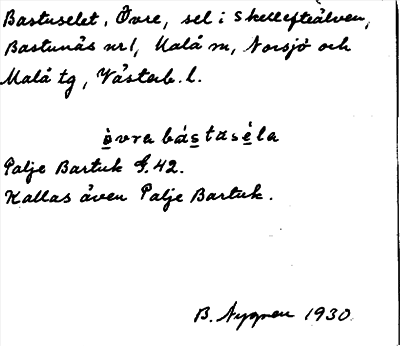 Bastuselet, Övre, sel i Skellefteälven,
Bastunäs nr 1, Malå sn, Norsjö och
Malå tg, Västerb. l.
övra bástaséla
Palje Bartuk G. 42.
Kallas även Palje Bartuk.
B. Nygren 1930